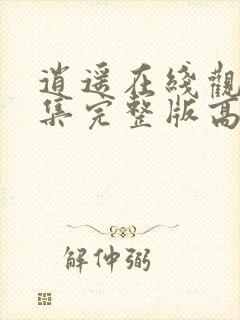 逍遥在綫觀
集完整版高
解仲弼